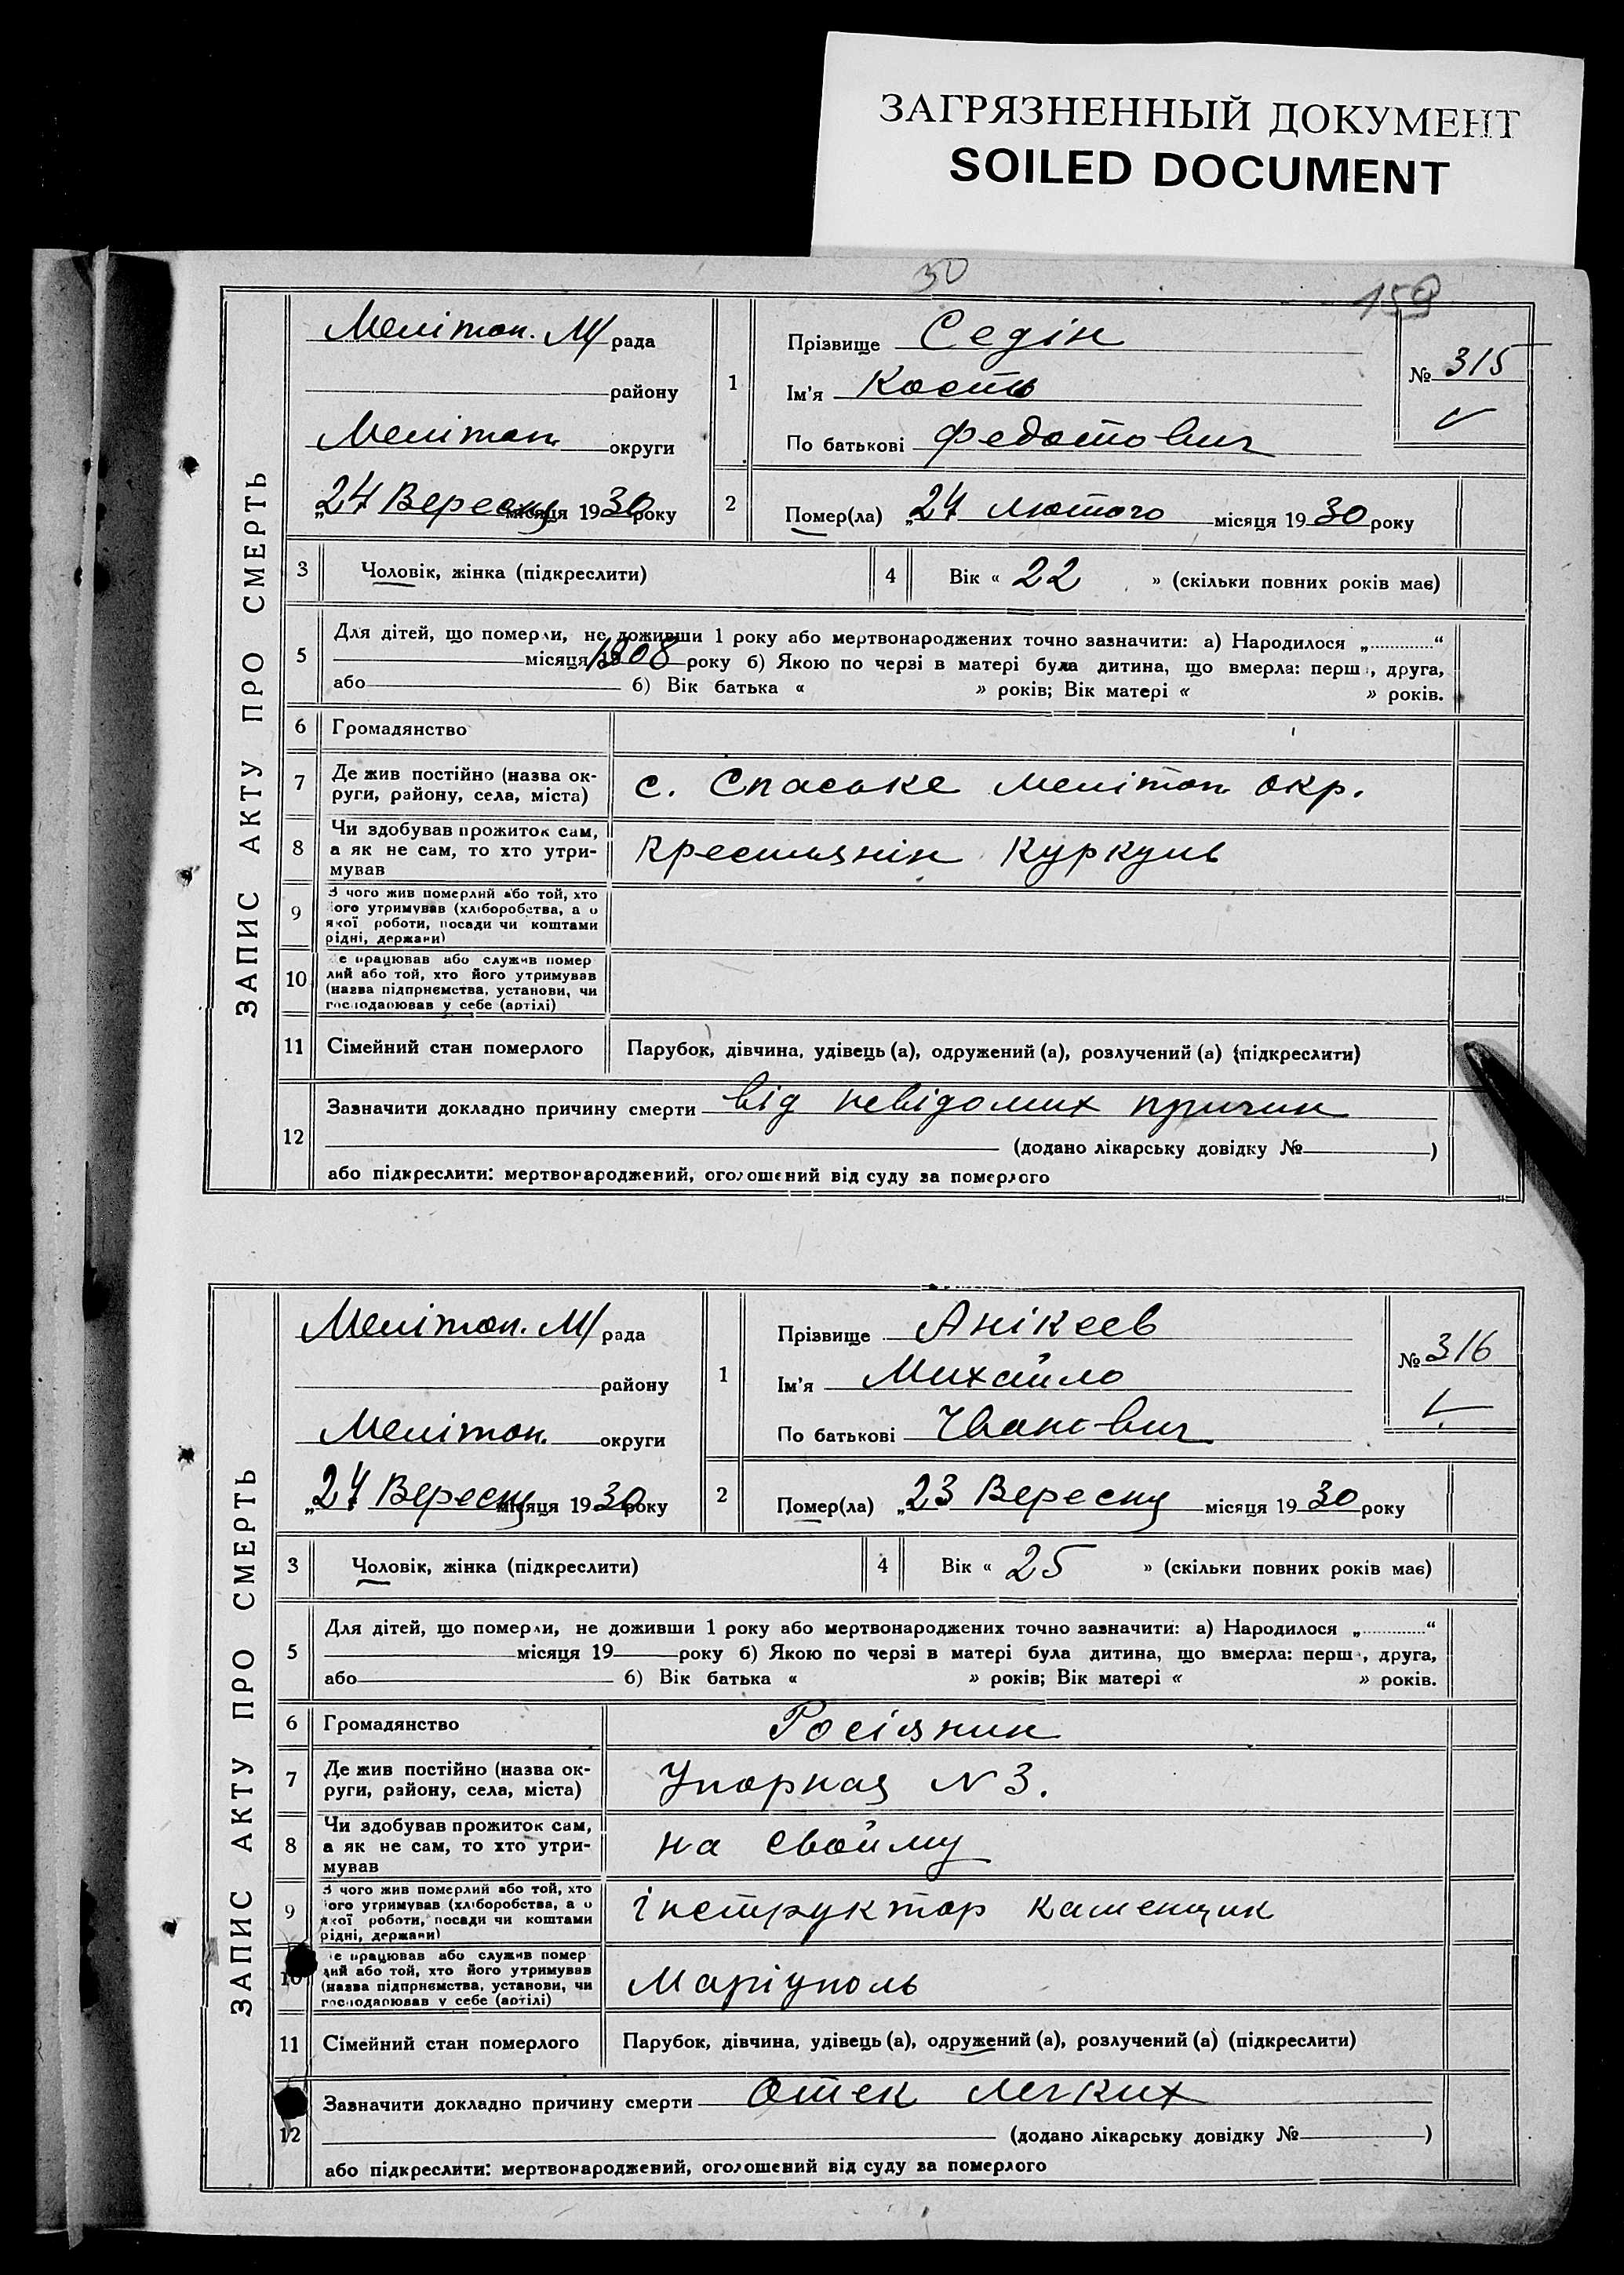 ЗАГРЯЗНЕННЫЙ ДОКУМЕНТ
SOILED DOCUMENT
30
159
ЗАПИС АКТУ ПРО СМЕРТЬ
Мелітоп. М/рада
району
Мелітоп. округи
„24 Вересня місяця 1930 року
1
Прізвище Седін
Ім'я Кость
По батькові Федотович
№ 315
2
Помер(ла) „24 Лютого місяця 1930 року
3 Чоловік, жінка (підкреслити)
4 Вік « 22 » (скільки повних років має)
5
Для дітей, що померли, не доживши 1 року або мертвонароджених точно зазначити: а) Народилося „............“
місяця 1908 року б) Якою по черзі в матері була дитина, що вмерла: перш , друга,
або 6) Вік батька « » років; Вік матері « » років.
6 Громадянство
7 Де жив постійно (назва ок-
руги, району, села, міста)
с. Спаське Мелітоп. окр.
8 Чи здобував прожиток сам,
а як не сам, то хто утри-
мував
Крестьянін Куркуль
9 З чого жив померлий або той, хто
його утримував (хліборобства, а о
якої роботи, посади чи коштами
рідні, держави)
10 е працював або служив помер
лий або той, хто його утримував
(назва підприємства, установи, чи
господарював у себе (артілі)
11 Сімейний стан померлого
Парубок, дівчина, удівець (а), одружений (а), розлучений (а) (підкреслити)
12
Зазначити докладно причину смерти від невідомих причин
(додано лікарську довідку № )
або підкреслити: мертвонароджений, оголошений від суду за померлого
ЗАПИС АКТУ ПРО СМЕРТЬ
Мелітоп. М/рада
району
Мелітоп. округи
„24 Вересня місяця 1930 року
1
Прізвище Анікеев
Ім'я Михайло
По батькові Іванович
№ 316
2
Помер(ла) „23 Вересня місяця 1930 року
3 Чоловік, жінка (підкреслити)
4 Вік « 25 » (скільки повних років має)
5
Для дітей, що померли, не доживши 1 року або мертвонароджених точно зазначити: а) Народилося „............“
місяця 19 року б) Якою по черзі в матері була дитина, що вмерла: перш , друга,
або 6) Вік батька « » років; Вік матері « » років.
6 Громадянство
Росіянин
7 Де жив постійно (назва ок-
руги, району, села, міста)
Упорная N 3.
8 Чи здобував прожиток сам,
а як не сам, то хто утри-
мував
на свойму
9 З чого жив померлий або той, хто
його утримував (хліборобства, а о
якої роботи, посади чи коштами
рідні, держави)
інструктор каменщик
10 е працював або служив помер
лий або той, хто його утримував
(назва підприємства, установи, чи
господарював у себе (артілі)
Маріуполь
11 Сімейний стан померлого
Парубок, дівчина, удівець (а), одружений (а), розлучений (а) (підкреслити)
12
Зазначити докладно причину смерти Отек легких
(додано лікарську довідку № )
або підкреслити: мертвонароджений, оголошений від суду за померлого